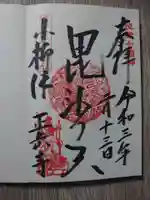 奉拝
令和三年
二月十三日
毘沙天
小柳津
正岳寺